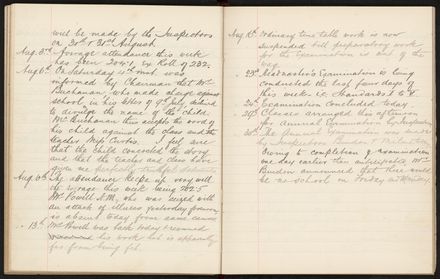 will be made by the Inspectors
on 30th & 31st August.
Aug. 3rd Average attendance this week
has been 204.1, on Roll of 232.
Aug 6th On Saturday 4th inst. was
informed by Chairman that Mr
Buchanan, who made charge against
school, in his letter of 9th July, desired
to the name of the child.
Mr Buchanan the word of
his child against the class and the
teacher, Miss I feel sure
that the child concocted the story
and that the teacher and class have
given me
Aug. The attendance keeps up very well
the average this week being 202.5
Mr Powell H.M., who was seized with
an attack of illness yesterday forenoon
is absent today from same cause
13th Mr Powell was back today & resumed
his work but is apparently
far from being fit.
Aug. Ordinary time table work is now
suspended till preparatory work
for the Examination is out of the
way.
23rd Headmaster's Examination is being
conducted the last four days of
this week. i.e. Standards 3 to 7.
24th Examination concluded today.
29th Classes arranged this afternoon
for Annual Examination by Inspectors
30th The Annual Examination was made
by Inspectors
Owing to completion of examination
one day earlier than anticipated, Mr
announced that there would
be no school on Friday and Monday